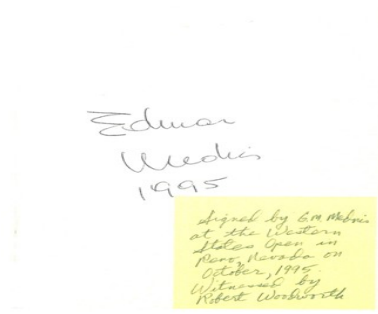 Edmar
Mednis
1995
Signed by G.M. Mednis
at the Western
States Open in
Reno, Nevada on
October, 1995.
Witnessed by
Robert Woodworth